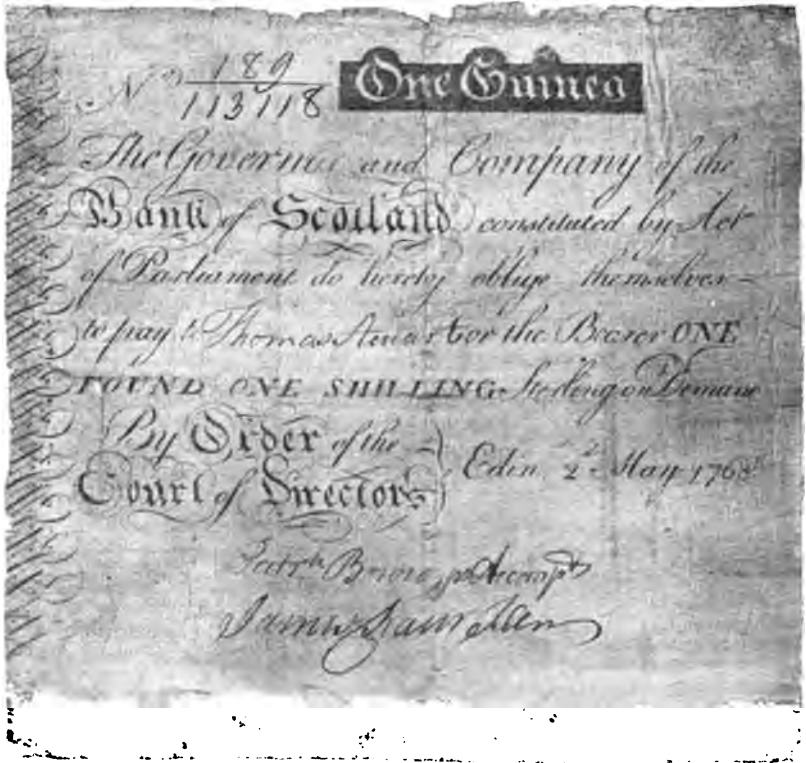 No 189/113118 One Guinea
The Governor and Company of the
Bank of Scotland constituted by Act
of Parliament do hereby oblige themselves
to pay to Thomas or the Bearer ONE
POUND ONE SHILLING Sterling on Demand
By Order of the
Court of Directors Edinr 2d May 1768
Brown pr Accompt
James